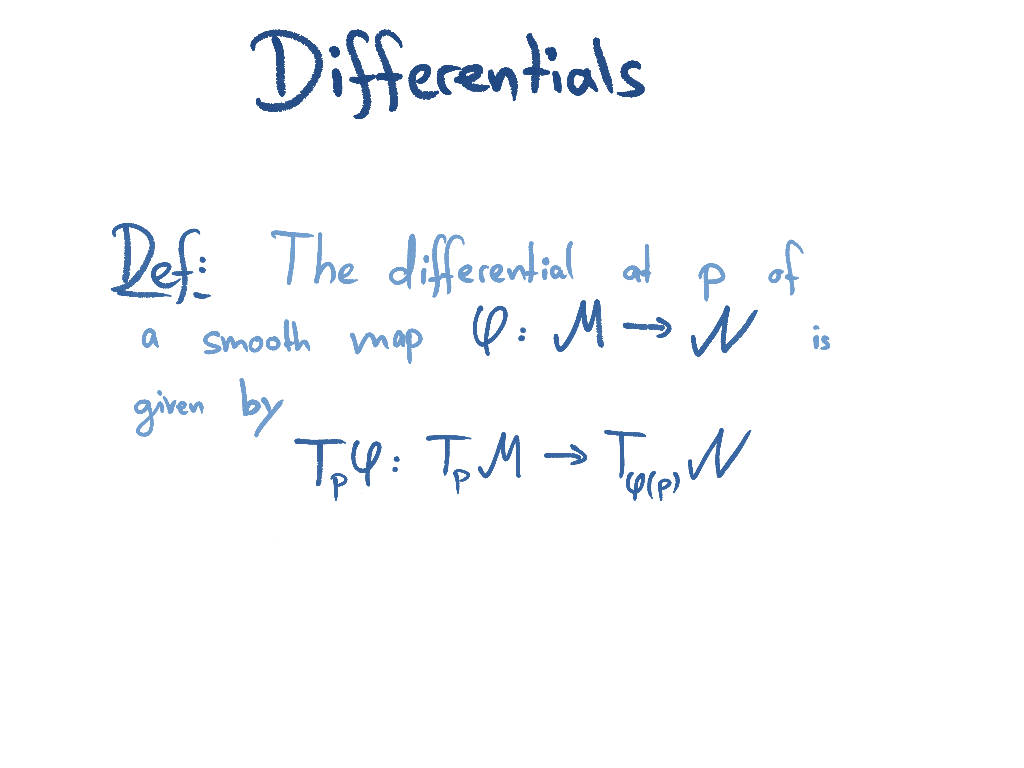 Differentials
Def: The differential at p of
a smooth map φ: M → N is
given by
Tₚφ: TₚM → T_φ(p) N